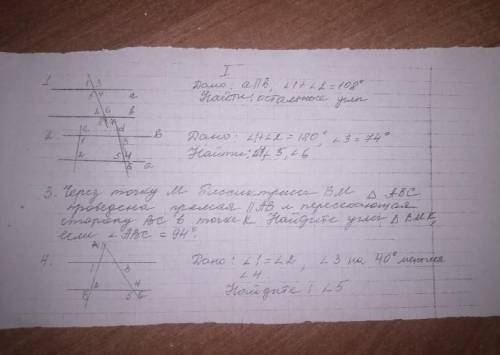 I
1.
1 3
4
a
2 6
b
Дано: a∥b, ∠1+∠2=108°
Найти: остальные углы
2.
c d
1 3 b
2 5 4
6 a
Дано: ∠1+∠2=180°, ∠3=74°
Найти: ∠5, ∠6
3. Через точку М биссектрисы ВМ △ АВС
проведена прямая ∥ АВ и пересекающая
сторону ВС в точке К. Найдите углы △ ВМК,
если ∠АВС = 94°.
4.
1 3
2 4
5
Дано: ∠1=∠2, ∠3 на 40° меньше
∠4
Найдите: ∠5